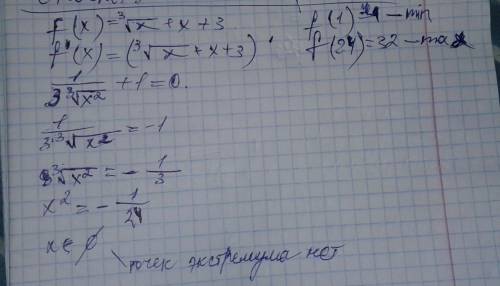 f(x)=∛x+x+3
f'(x)=(∛x+x+3)'
1/(3∛x²)+1=0.
1/(3·∛x²)=-1
∛x²=-1/3
x²=-1/27
x∈∅
точек экстремума нет
f(1) – min
f(27)=32 – max